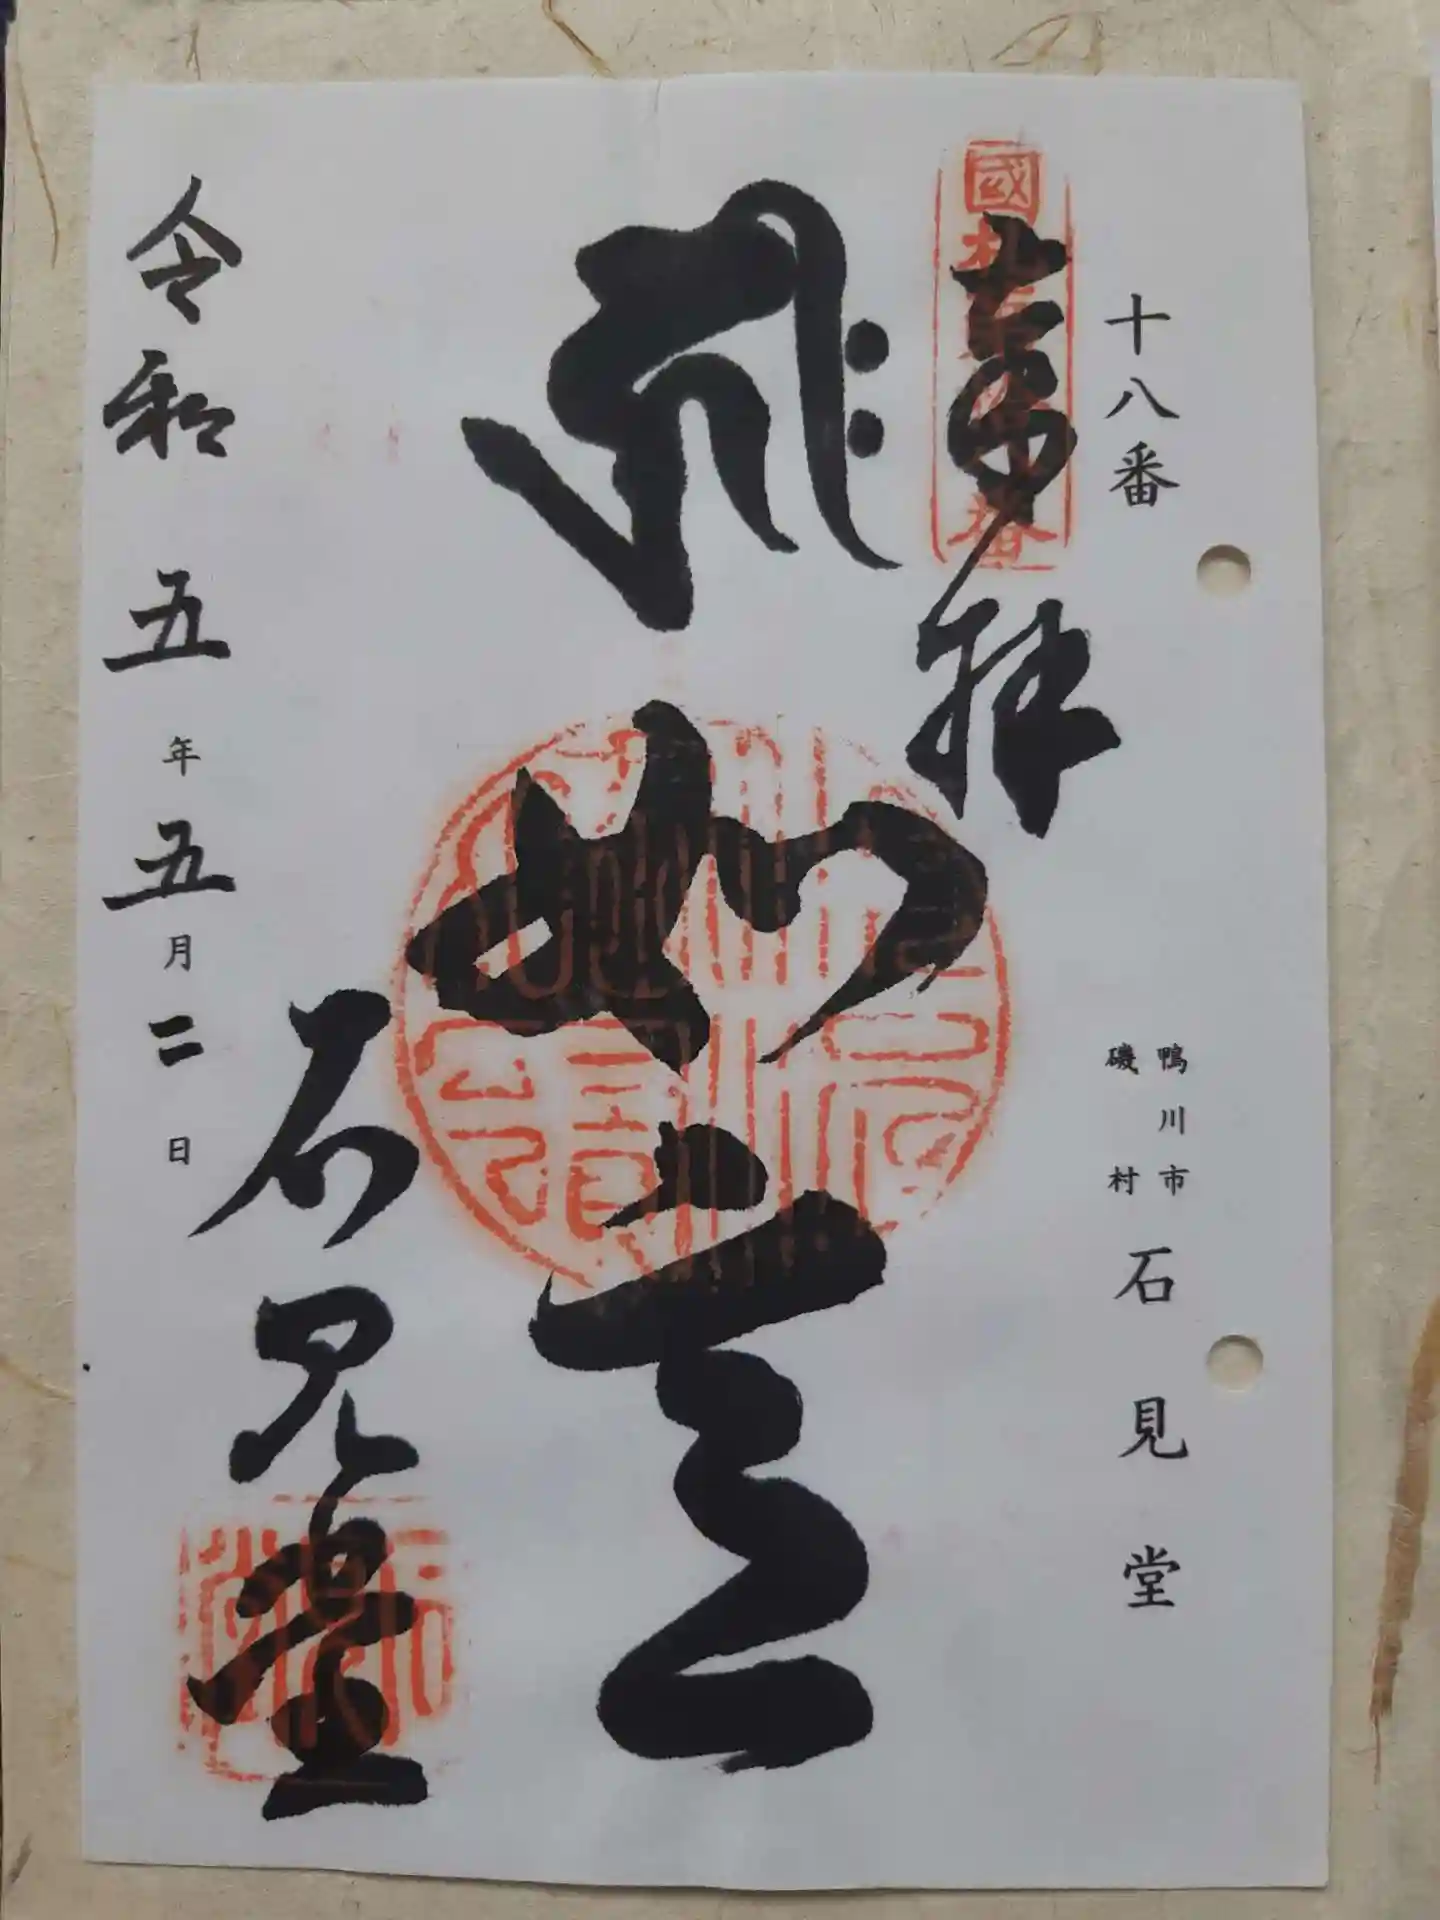 十八番
鴨川市
磯村
石見堂
奉拝
國
如意
石見堂
令和五年五月二日